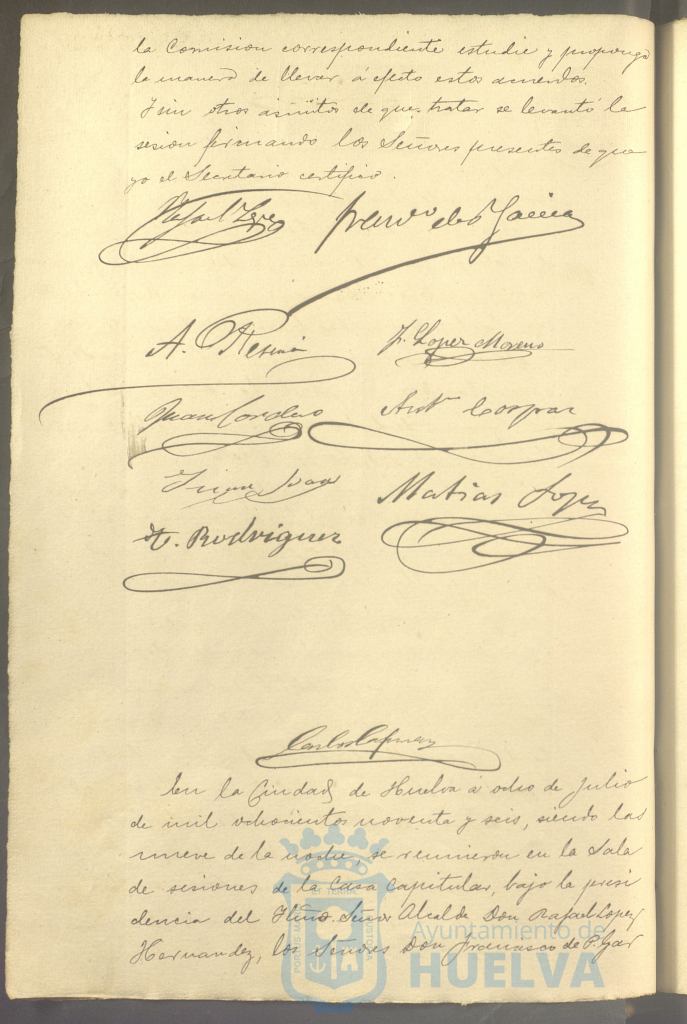 la Comision correspondiente estudie y proponga
la manera de llevar á efecto estos acuerdos.
Y sin otros asuntos de que tratar se levantó la
sesion firmando los Señores presentes de que
yo el Secretario certifico.
Rafael Lopez
Franco de P. Garcia
A. Resina
J. Lopez Moreno
Juan Cordero
Anto Gaspar
Matias Lopez
Rodriguez
Carlos
En la Ciudad de Huelva á ocho de Julio
de mil ochocientos noventa y seis, siendo las
nueve de la noche, se reunieron en la Sala
de sesiones de la Casa Capitular, bajo la presi
dencia del Iltmo. Señor Alcalde Don Rafael Lopez
Hernandez, los Señores Don Francisco de P. Gar
Ayuntamiento de
HUELVA